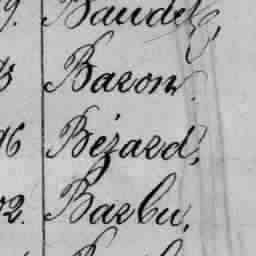 9. Baudet,
Baron.
16 Bézard,
02. Barbu,